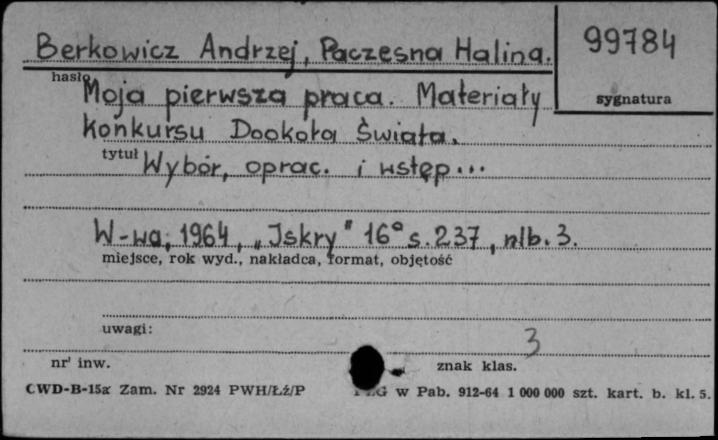 Berkowicz Andrzej, Paczesna Halina.
99784
hasło
sygnatura
Moja pierwsza praca. Materiały
konkursu Dookoła Świata.
tytuł
Wybór, oprac. i wstęp...
W-wa, 1964, „Iskry" 16° s. 237, nlb. 3.
miejsce, rok wyd., nakładca, format, objętość
uwagi:
3
nr inw.
znak klas.
CWD-B-15a Zam. Nr 2924 PWH/Łź/P
w Pab. 912-64 1 000 000 szt. kart. b. kl. 5.